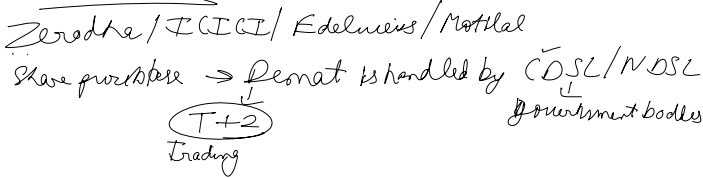 Zerodha / ICICI / Edelweiss / Motilal
Share purchase → Demat is handled by CDSL / NDSL
T+2
Government bodies
Trading